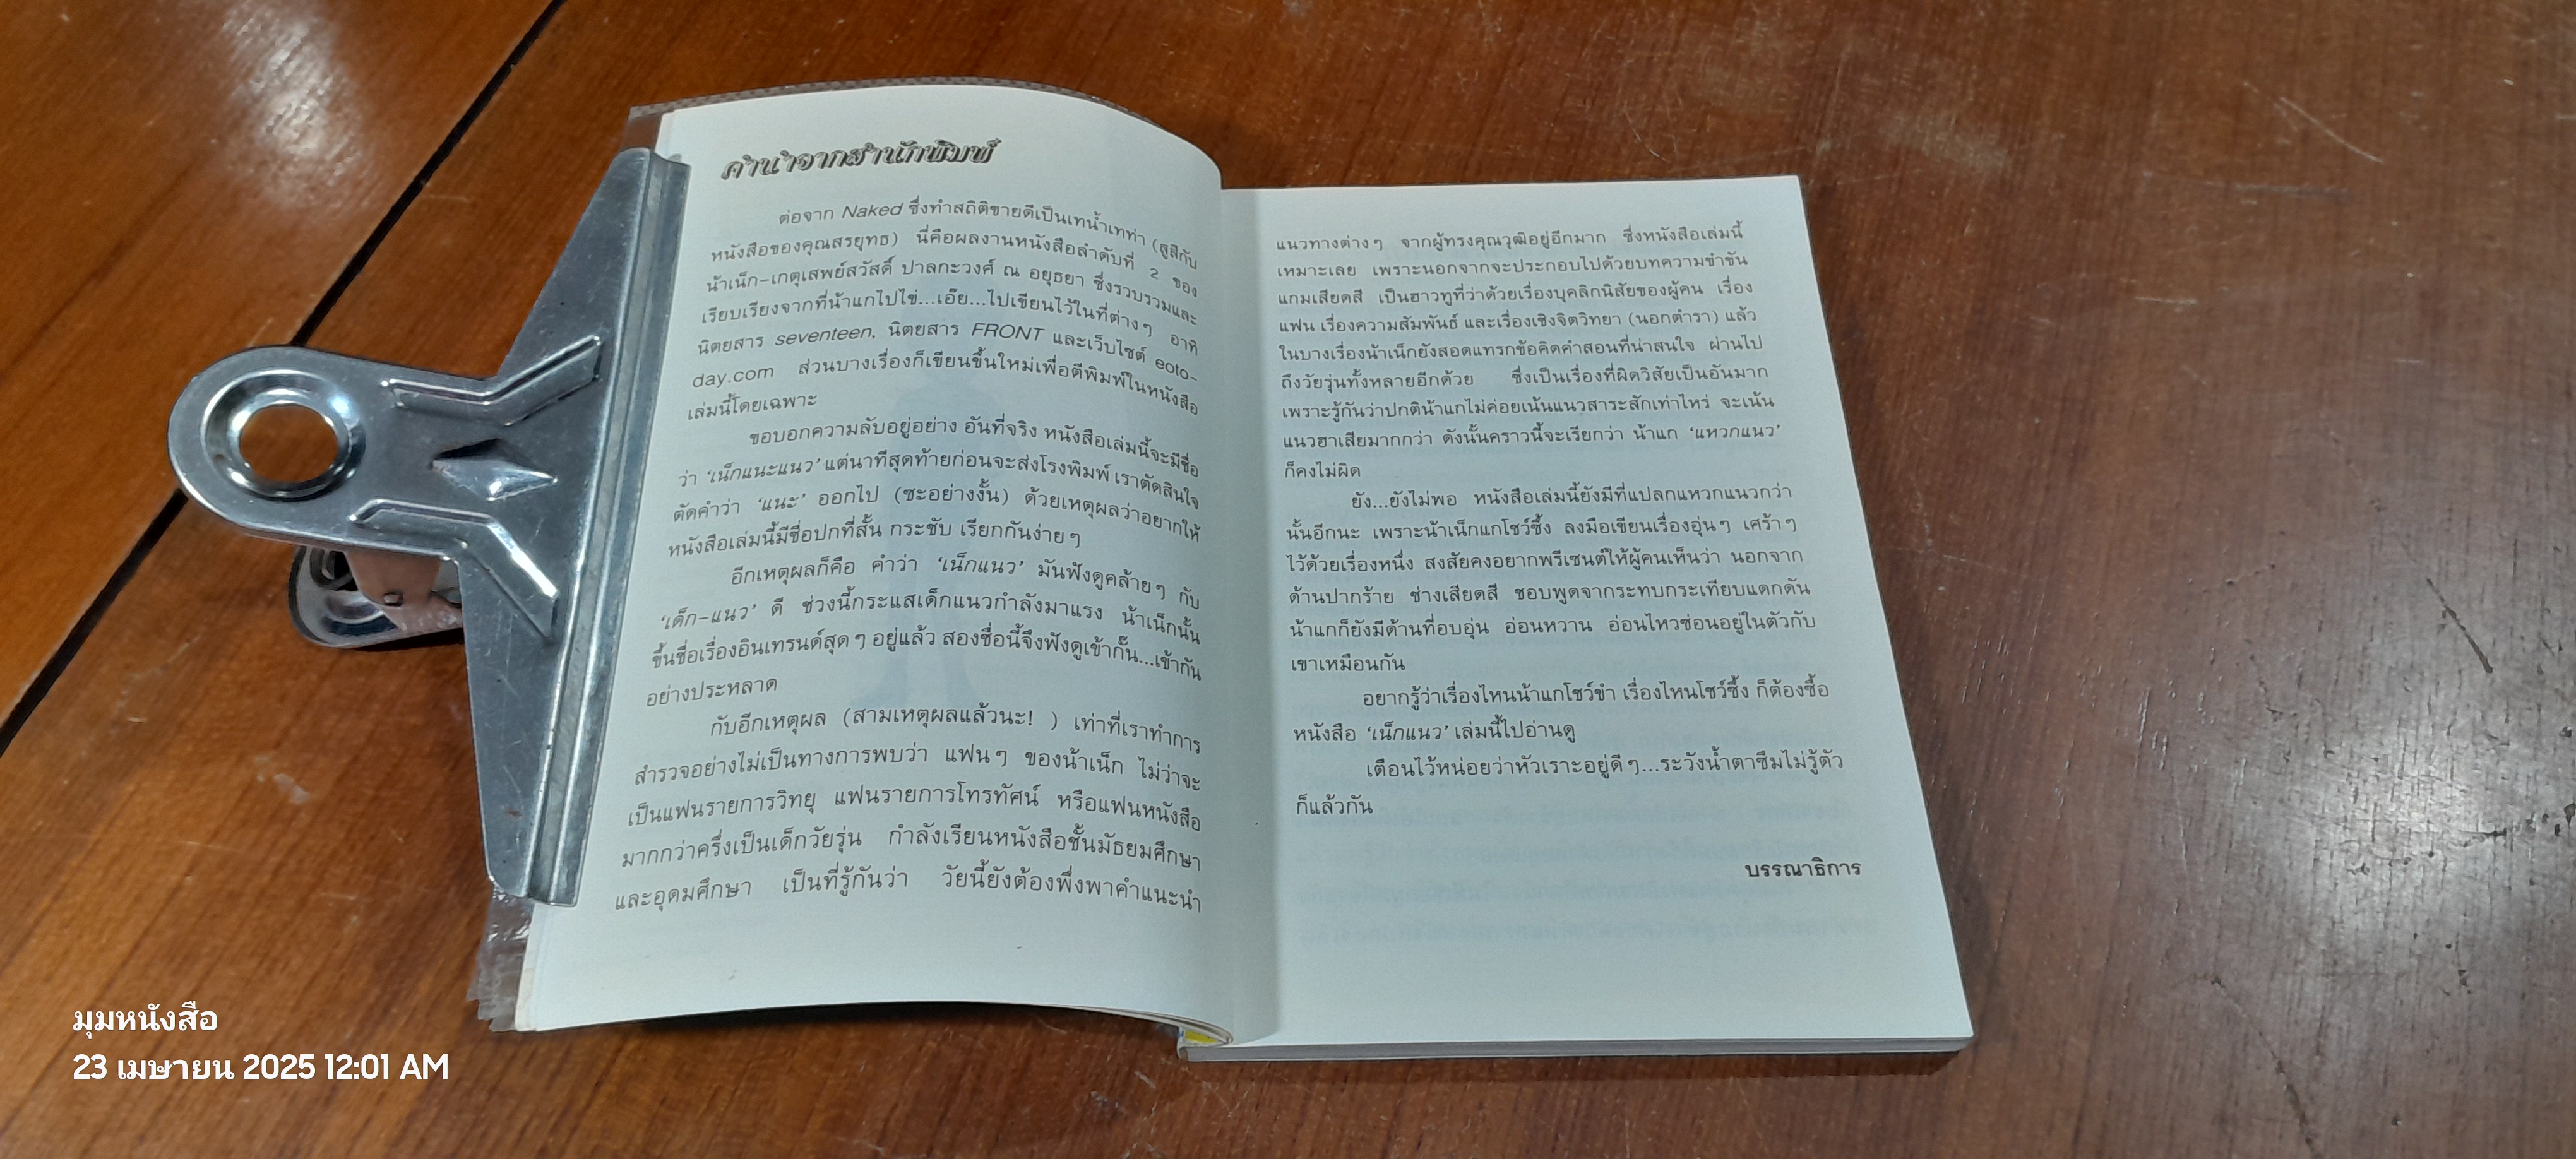 คำนำจากสำนักพิมพ์
ต่อจาก Naked ซึ่งทำสถิติขายดีเป็นเทน้ำเทท่า (สูสีกับ
หนังสือของคุณสรยุทธ) นี่คือผลงานหนังสือลำดับที่ 2 ของ
น้าเน็ก-เกตุเสพย์สวัสดิ์ ปาลกะวงศ์ ณ อยุธยา ซึ่งรวบรวมและ
เรียบเรียงจากที่น้าแกไปไข่...เอ๊ย...ไปเขียนไว้ในที่ต่างๆ อาทิ
นิตยสาร seventeen, นิตยสาร FRONT และเว็บไซต์ eoto-
day.com ส่วนบางเรื่องก็เขียนขึ้นใหม่เพื่อตีพิมพ์ในหนังสือ
เล่มนี้โดยเฉพาะ
ขอบอกความลับอยู่อย่าง อันที่จริง หนังสือเล่มนี้จะมีชื่อ
ว่า ‘เน็กแนะแนว’ แต่นาทีสุดท้ายก่อนจะส่งโรงพิมพ์ เราตัดสินใจ
ตัดคำว่า ‘แนะ’ ออกไป (ซะอย่างงั้น) ด้วยเหตุผลว่าอยากให้
หนังสือเล่มนี้มีชื่อปกที่สั้น กระชับ เรียกกันง่ายๆ
อีกเหตุผลก็คือ คำว่า ‘เน็กแนว’ มันฟังดูคล้ายๆ กับ
‘เด็ก-แนว’ ดี ช่วงนี้กระแสเด็กแนวกำลังมาแรง น้าเน็กนั้น
ขึ้นชื่อเรื่องอินเทรนด์สุดๆ อยู่แล้ว สองชื่อนี้จึงฟังดูเข้ากั๊น...เข้ากัน
อย่างประหลาด
กับอีกเหตุผล (สามเหตุผลแล้วนะ! ) เท่าที่เราทำการ
สำรวจอย่างไม่เป็นทางการพบว่า แฟนๆ ของน้าเน็ก ไม่ว่าจะ
เป็นแฟนรายการวิทยุ แฟนรายการโทรทัศน์ หรือแฟนหนังสือ
มากกว่าครึ่งเป็นเด็กวัยรุ่น กำลังเรียนหนังสือชั้นมัธยมศึกษา
และอุดมศึกษา เป็นที่รู้กันว่า วัยนี้ยังต้องพึ่งพาคำแนะนำ
แนวทางต่างๆ จากผู้ทรงคุณวุฒิอยู่อีกมาก ซึ่งหนังสือเล่มนี้
เหมาะเลย เพราะนอกจากจะประกอบไปด้วยบทความขำขัน
แกมเสียดสี เป็นฮาวทูที่ว่าด้วยเรื่องบุคลิกนิสัยของผู้คน เรื่อง
แฟน เรื่องความสัมพันธ์ และเรื่องเชิงจิตวิทยา (นอกตำรา) แล้ว
ในบางเรื่องน้าเน็กยังสอดแทรกข้อคิดคำสอนที่น่าสนใจ ผ่านไป
ถึงวัยรุ่นทั้งหลายอีกด้วย ซึ่งเป็นเรื่องที่ผิดวิสัยเป็นอันมาก
เพราะรู้กันว่าปกติน้าแกไม่ค่อยเน้นแนวสาระสักเท่าไหร่ จะเน้น
แนวฮาเสียมากกว่า ดังนั้นคราวนี้จะเรียกว่า น้าแก ‘แหวกแนว’
ก็คงไม่ผิด
ยัง...ยังไม่พอ หนังสือเล่มนี้ยังมีที่แปลกแหวกแนวกว่า
นั้นอีกนะ เพราะน้าเน็กแกโชว์ซึ้ง ลงมือเขียนเรื่องอุ่นๆ เศร้าๆ
ไว้ด้วยเรื่องหนึ่ง สงสัยคงอยากพรีเซนต์ให้ผู้คนเห็นว่า นอกจาก
ด้านปากร้าย ช่างเสียดสี ชอบพูดจากระทบกระเทียบแดกดัน
น้าแกก็ยังมีด้านที่อบอุ่น อ่อนหวาน อ่อนไหวซ่อนอยู่ในตัวกับ
เขาเหมือนกัน
อยากรู้ว่าเรื่องไหนน้าแกโชว์ขำ เรื่องไหนโชว์ซึ้ง ก็ต้องซื้อ
หนังสือ ‘เน็กแนว’ เล่มนี้ไปอ่านดู
เตือนไว้หน่อยว่าหัวเราะอยู่ดีๆ...ระวังน้ำตาซึมไม่รู้ตัว
ก็แล้วกัน
บรรณาธิการ
มุมหนังสือ
23 เมษายน 2025 12:01 AM